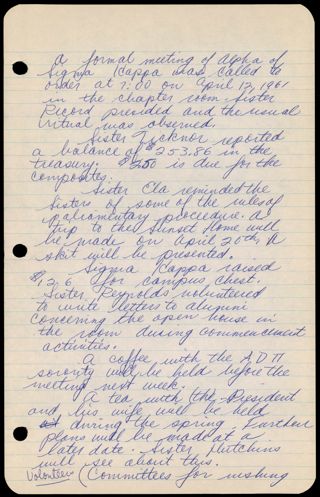 A formal meeting of Alpha of
Sigma Kappa was called to
order at 7:00 on April 12, 1961
in the chapter room. Sister
Record presided and the usual
ritual was observed.
Sister Ticknor reported
a balance of $253.86 in the
treasury. $2.50 is due for the
composites.
Sister Cla reminded the
sisters of some of the rules of
parliamentary proceedure. A
trip to the Sunset Home will
be made on April 20th. A
skit will be presented.
Sigma Kappa raised
$126 for campus chest.
Sister Reynolds volunteered
to write letters to alumni
concerning the open house in
the room during commencement
activities.
A coffee with the ADΠ
sorority will be held before the
meeting next week.
A tea with the President
and his wife will be held
during the spring. Further
plans will be made at a
later date. Sister Hutchins
will see about this.
Volunteers (Committees for rushing